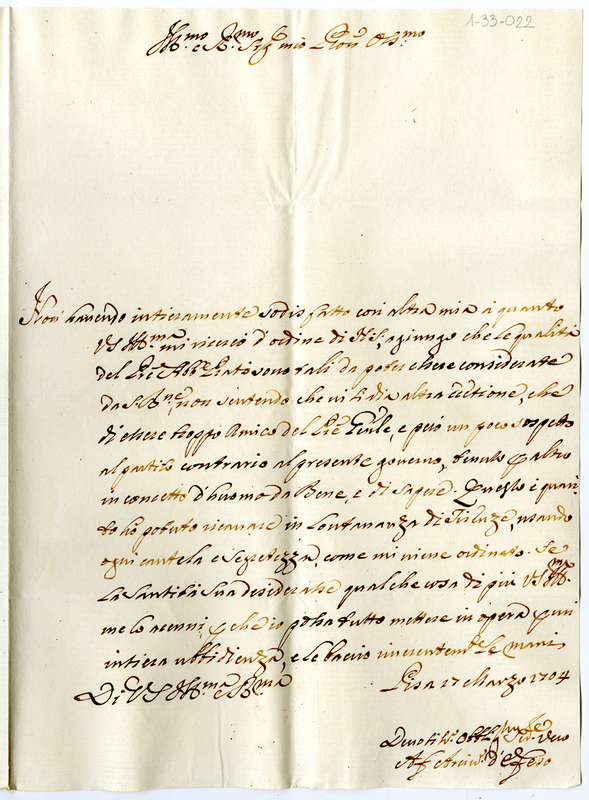 1-33-022
Ill.mo e R.mo Sig.r mio P̃ron Oss.mo
Non havendo intieramente sodisfatto con altra mia à quanto
VS Ill.ma mi ricercò d'ordine di N.S., agiungo che le qualità
del P̃re Ab.e Prato sono tali da poter essere considerate
da S. B.ne, non sentendo che vi si dia altra ecc.tione, che
di essere troppo Amico del P̃re G̃nle, e però un poco sospetto
al partito contrario al presente governo, tenuto p altro
in concetto d'huomo da Bene, e di sapere. Questo è quan
to hò potuto ricavare in lontananza di Firenze, usando
ogni cautela e segretezza, come mi viene ordinato. Se
la Santità Sua desiderasse qualche cosa di più VS Ill.ma
me lo accenni, p che io possa tutto mettere in opera p una
intiera ubbidienza, e le bacio riverentem.te le mani
Di VS Ill.ma e R.ma Pisa 17 Marzo 1704
Devotiss.o Obblig.mo Ser.re vero
Af Arciv.o d'Efeso